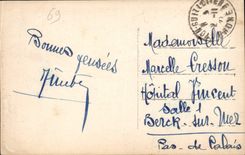 69
Bonnes pensées
Mademoiselle
Marcelle Cresson
Hôpital Vincent
Salle 1
Berck-sur-Mer
Pas-de-Calais